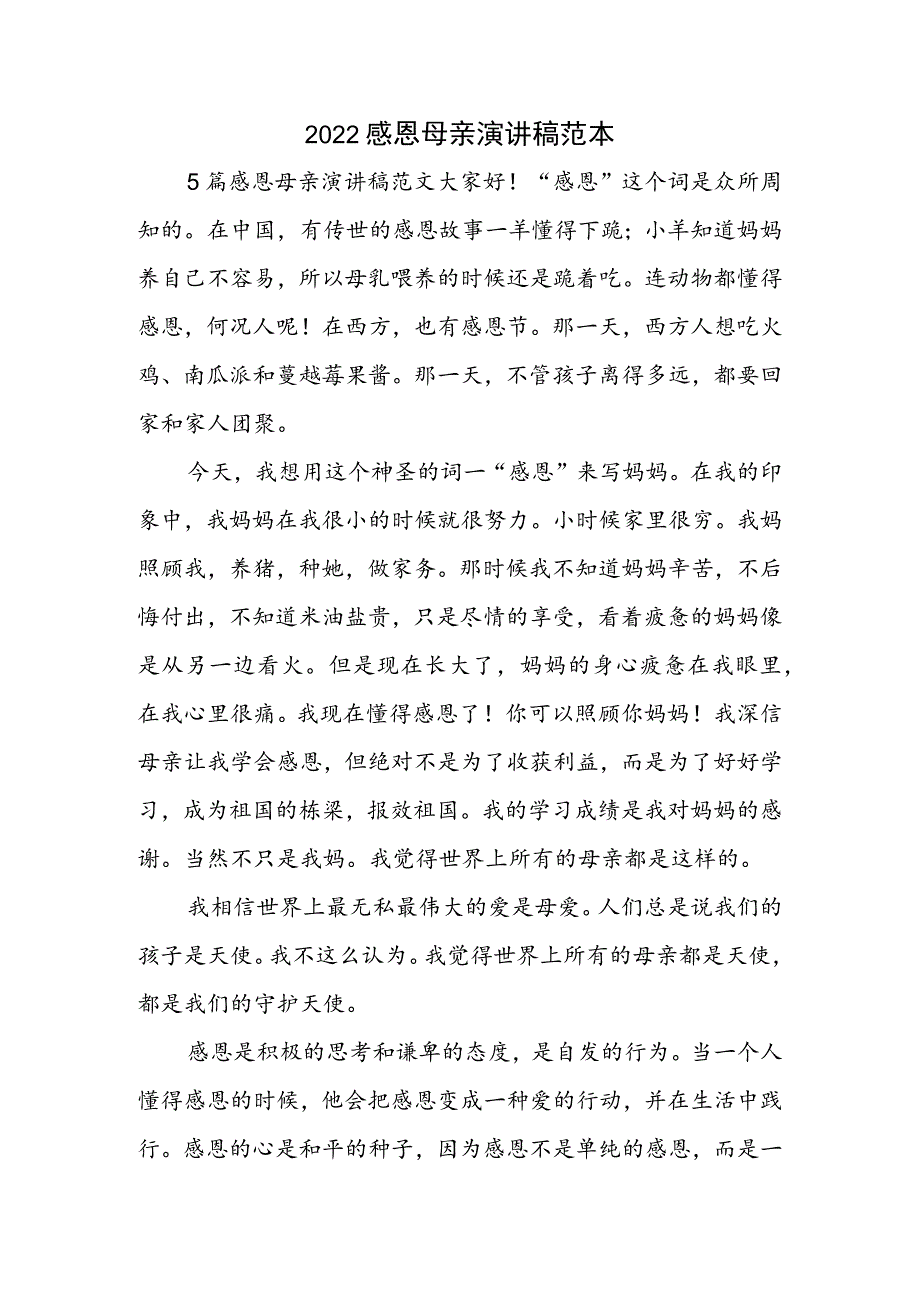 2022感恩母亲演讲稿范本
5篇感恩母亲演讲稿范文大家好！“感恩”这个词是众所周
知的。在中国，有传世的感恩故事一羊懂得下跪；小羊知道妈妈
养自己不容易，所以母乳喂养的时候还是跪着吃。连动物都懂得
感恩，何况人呢！在西方，也有感恩节。那一天，西方人想吃火
鸡、南瓜派和蔓越莓果酱。那一天，不管孩子离得多远，都要回
家和家人团聚。
今天，我想用这个神圣的词一“感恩”来写妈妈。在我的印
象中，我妈妈在我很小的时候就很努力。小时候家里很穷。我妈
照顾我，养猪，种她，做家务。那时候我不知道妈妈辛苦，不后
悔付出，不知道米油盐贵，只是尽情的享受，看着疲惫的妈妈像
是从另一边看火。但是现在长大了，妈妈的身心疲惫在我眼里，
在我心里很痛。我现在懂得感恩了！你可以照顾你妈妈！我深信
母亲让我学会感恩，但绝对不是为了收获利益，而是为了好好学
习，成为祖国的栋梁，报效祖国。我的学习成绩是我对妈妈的感
谢。当然不只是我妈。我觉得世界上所有的母亲都是这样的。
我相信世界上最无私最伟大的爱是母爱。人们总是说我们的
孩子是天使。我不这么认为。我觉得世界上所有的母亲都是天使，
都是我们的守护天使。
感恩是积极的思考和谦卑的态度，是自发的行为。当一个人
懂得感恩的时候，他会把感恩变成一种爱的行动，并在生活中践
行。感恩的心是和平的种子，因为感恩不是单纯的感恩，而是一